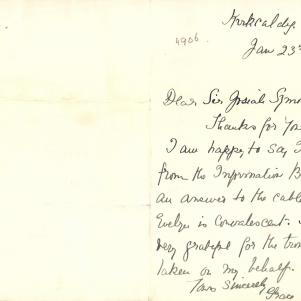 Kirkcaldy
4906
Jan 23rd
Dear Sir Josiah Symo
Thanks for Yo
I am happy to say I
from the Information B
an answer to the cabl
Evelyn is Convalescent.
very grateful for the trou
taken on my behalf.
Yours Sincerely
Grac